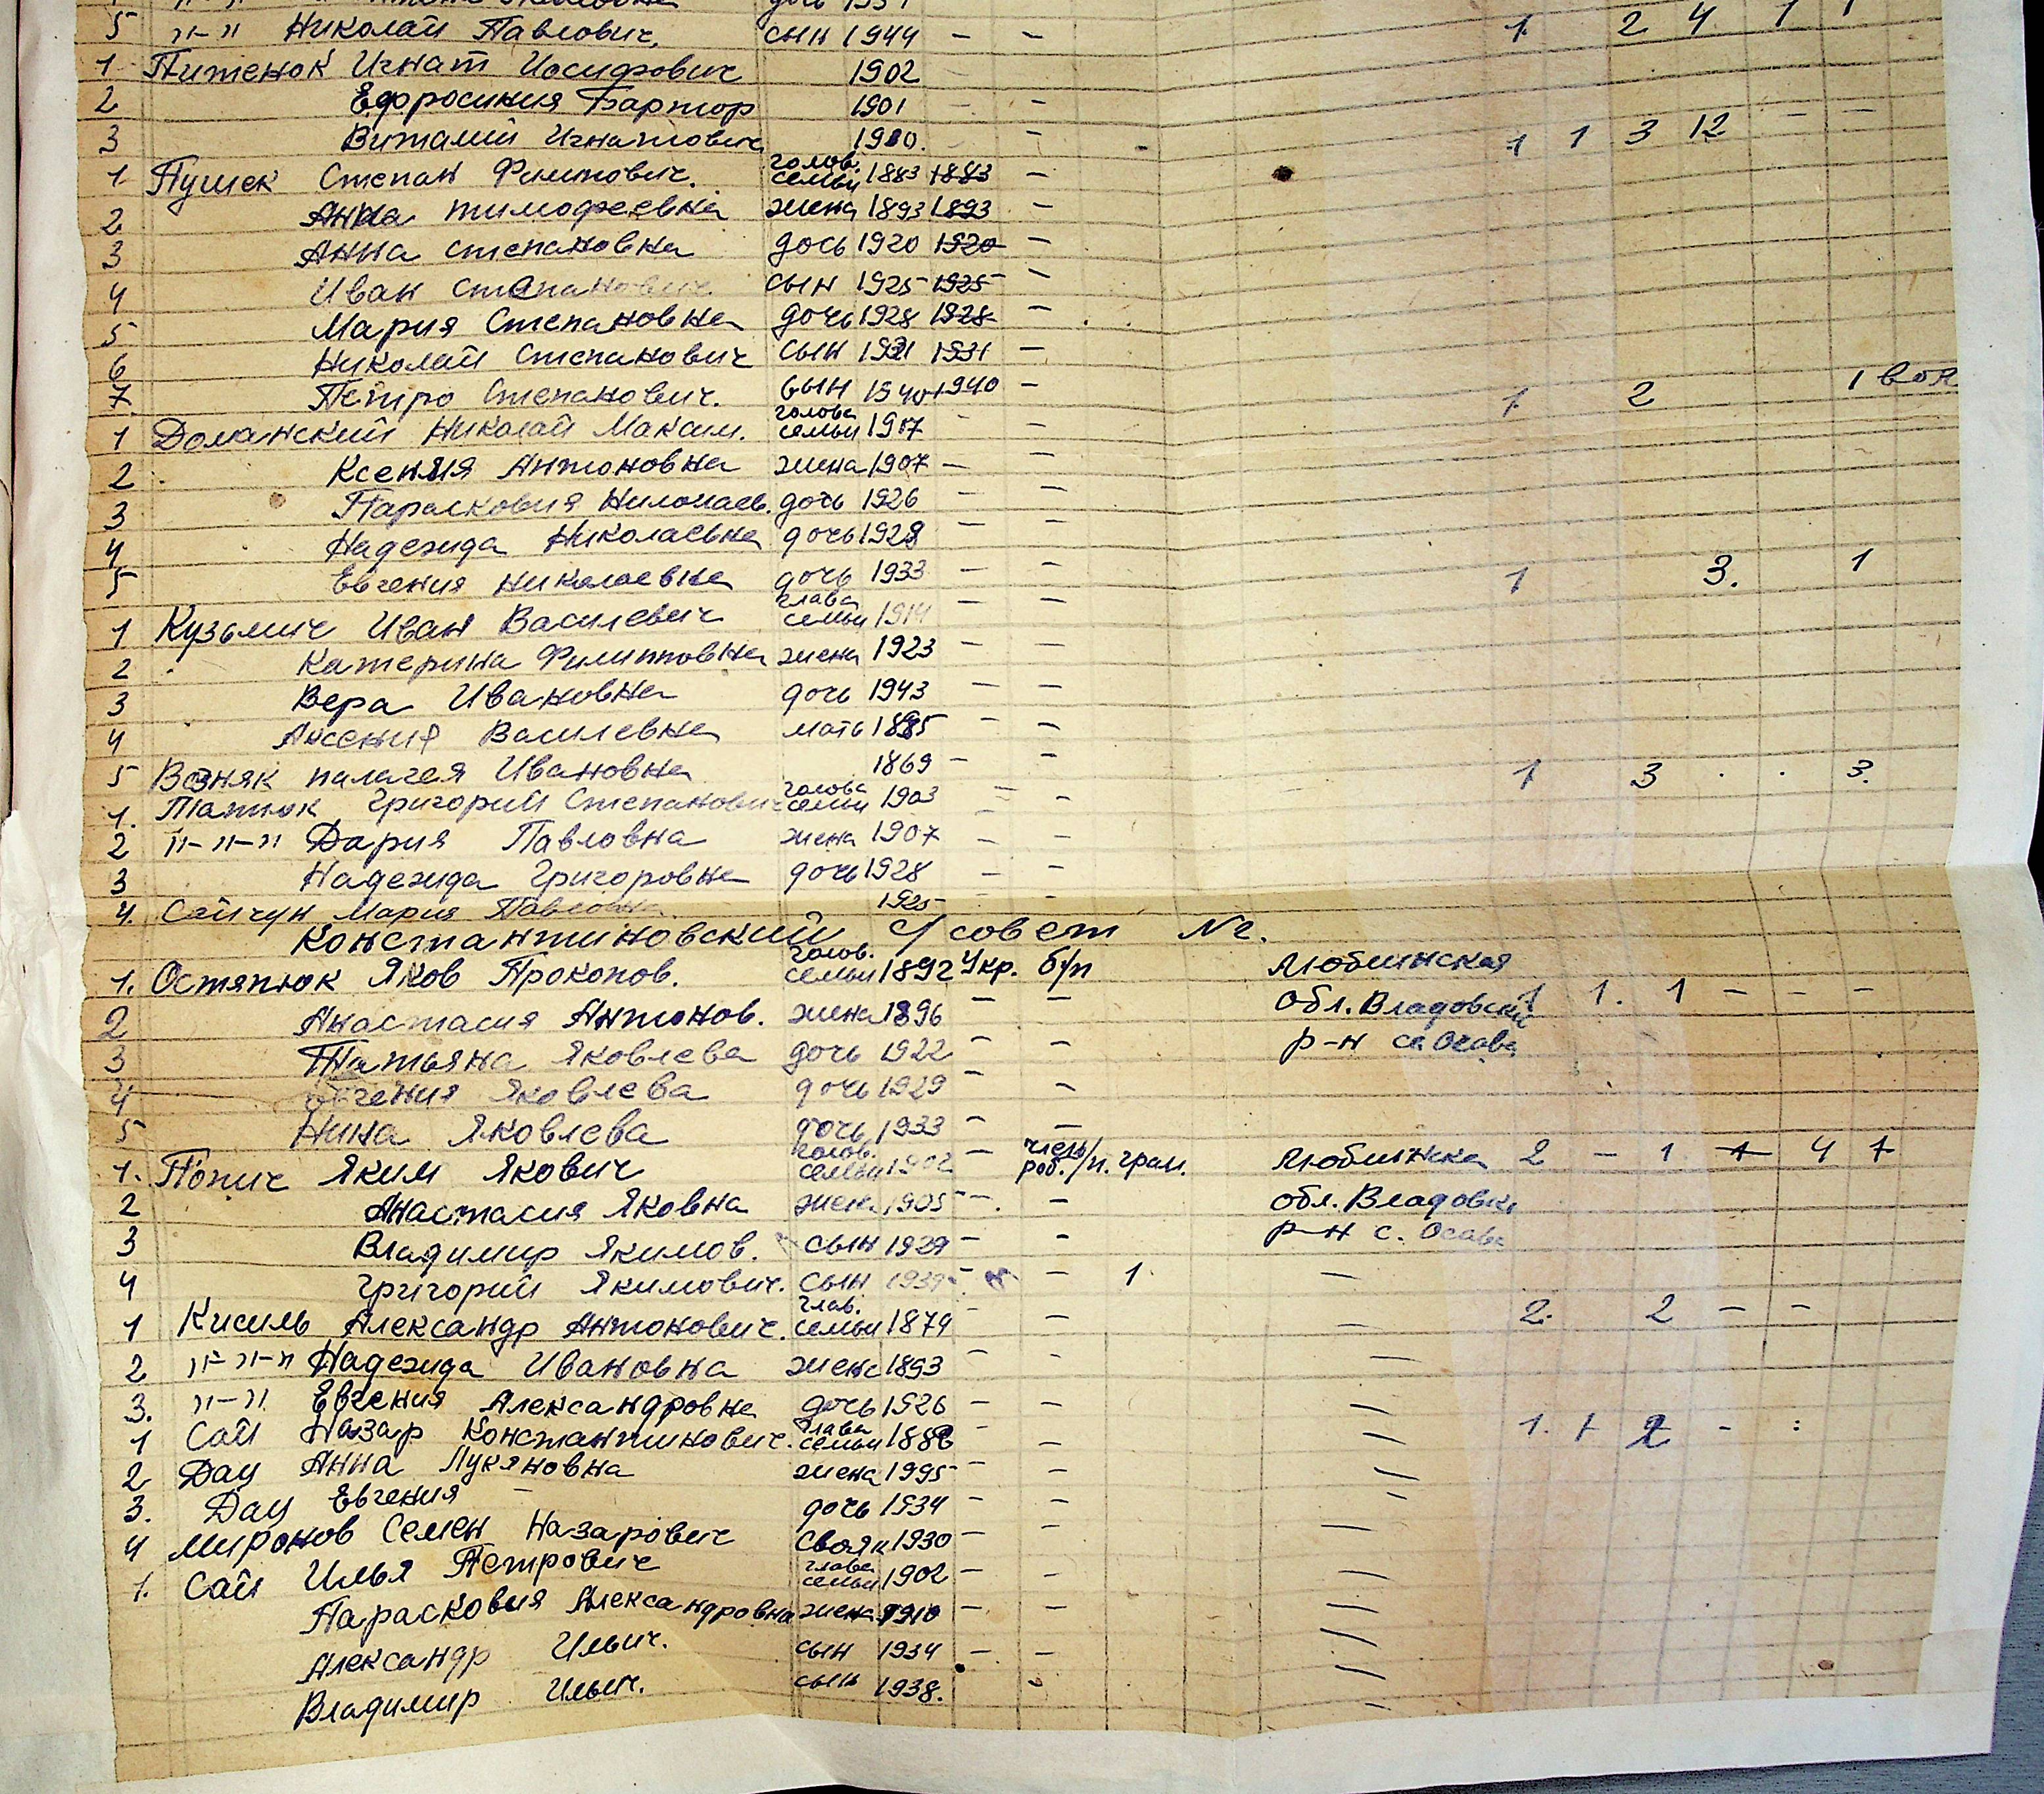 5 "-" Николай Павлович. сын 1944 - - 1. 2 4 1 1
1 Питенок Игнат Иосифович 1902
2 Ефросиния Бартор 1901 - -
3 Виталий Игнатович 1930. - 1 1 3 12 - -
1 Пушек Степан Филипович. голов. семьи 1883 1883 -
2 Анна тимофеевна жена 1893 1893 -
3 Анна степановна дочь 1920 1920 -
4 Иван степанович сын 1925 1925 -
5 Мария Степановна дочь 1928 1928 -
6 Николай Степанович сын 1931 1931 -
7. Петро Степанович. сын 1940 1940 - 1. 2 1 вол
1 Доманский Николай Максим. голова семьи 1907 - -
2 Ксения Антоновна жена 1907 - -
3 Парасковия Николаев. дочь 1926 - -
4 Надежида Николаевна дочь 1928 - -
5 Евгения николаевна дочь 1933 - - 1 3. 1
1 Кузьмич Иван Василевич глава семьи 1914 - -
2 Катерина Филипповна жена 1923 - -
3 Вера Ивановна дочь 1943 - -
4 Аксения Василевна мать 1885 - -
5 Возняк палагея Ивановна 1869 - - 1 3 . . 3.
1. Татюк Григорий Степанович голова семьи 1903 - -
2 "-"-" Дария Павловна жена 1907 - -
3 Надежида Григоровна дочь 1928 - -
4. Сайчун Мария Павловн 1925 - -
Константиновский с/совет №2.
1. Остапюк Яков Прокопов. голов. семьи 1892 Укр. б/п Люблинская
2 Анастасия Антонов. жена 1896 - - обл. Владовский 1 1. 1 - - -
3 Татьяна Яковлева дочь 1922 - - р-н с. Осава
4 Евгения Яковлева дочь 1929 - -
5 Нина Яковлева дочь 1933 - -
1. Попич Яким Якович голов. семьи 1902 - член/роб./п. грам. Люблинска 2 - 1 1 4 1
2 Анастасия Яковна жена 1905 - - обл. Владовск
3 Владимир Якимов. сын 1929 - - р-н с. Осава
4 Григорий Якимович. сын 1939 - - 1 -
1 Кисиль Александр Антонович. глав. семьи 1879 - - - 2. 2 - -
2 "-"-" Надежида Ивановна жена 1893 - - -
3. "-" Евгения Александровна дочь 1926 - - -
1 Сай Назар Константинович. глава семьи 1888 - - - 1. 1 2 - :
2 Дац Анна Лукяновна жена 1995 - -
3. Дац Евгения - дочь 1934 - - -
4 Миронов Семен Назарович свояк 1930 - - -
1. Сай Илья Петрович глава семьи 1902 - - -
Парасковия Александровна жена 1910 - - -
Александр Ильич. сын 1934 - - -
Владимир Ильич. сын 1938. - -